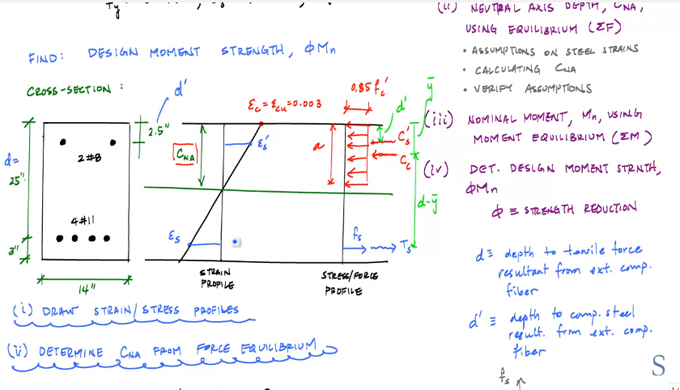 FIND: DESIGN MOMENT STRENGTH, ϕMn
CROSS-SECTION:
d'
2.5"
d=
25"
2#8
4#11
3"
14"
εc = εcu = 0.003
CNA
εs'
εs
STRAIN
PROFILE
0.85 f'c
d'
ȳ
a
Cs'
Cc
d-ȳ
fs
Ts
STRESS/FORCE
PROFILE
(i) DRAW STRAIN/STRESS PROFILES
(ii) DETERMINE CNA FROM FORCE EQUILIBRIUM
(ii) NEUTRAL AXIS DEPTH, CNA,
USING EQUILIBRIUM (ΣF)
• ASSUMPTIONS ON STEEL STRAINS
• CALCULATING CNA
• VERIFY ASSUMPTIONS
(iii) NOMINAL MOMENT, Mn, USING
MOMENT EQUILIBRIUM (ΣM)
(iv) DET. DESIGN MOMENT STRNTH,
ϕMn
ϕ ≡ STRENGTH REDUCTION
d ≡ depth to tensile force
resultant from ext. comp.
fiber
d' ≡ depth to comp. steel
result. from ext. comp.
fiber
fs
S